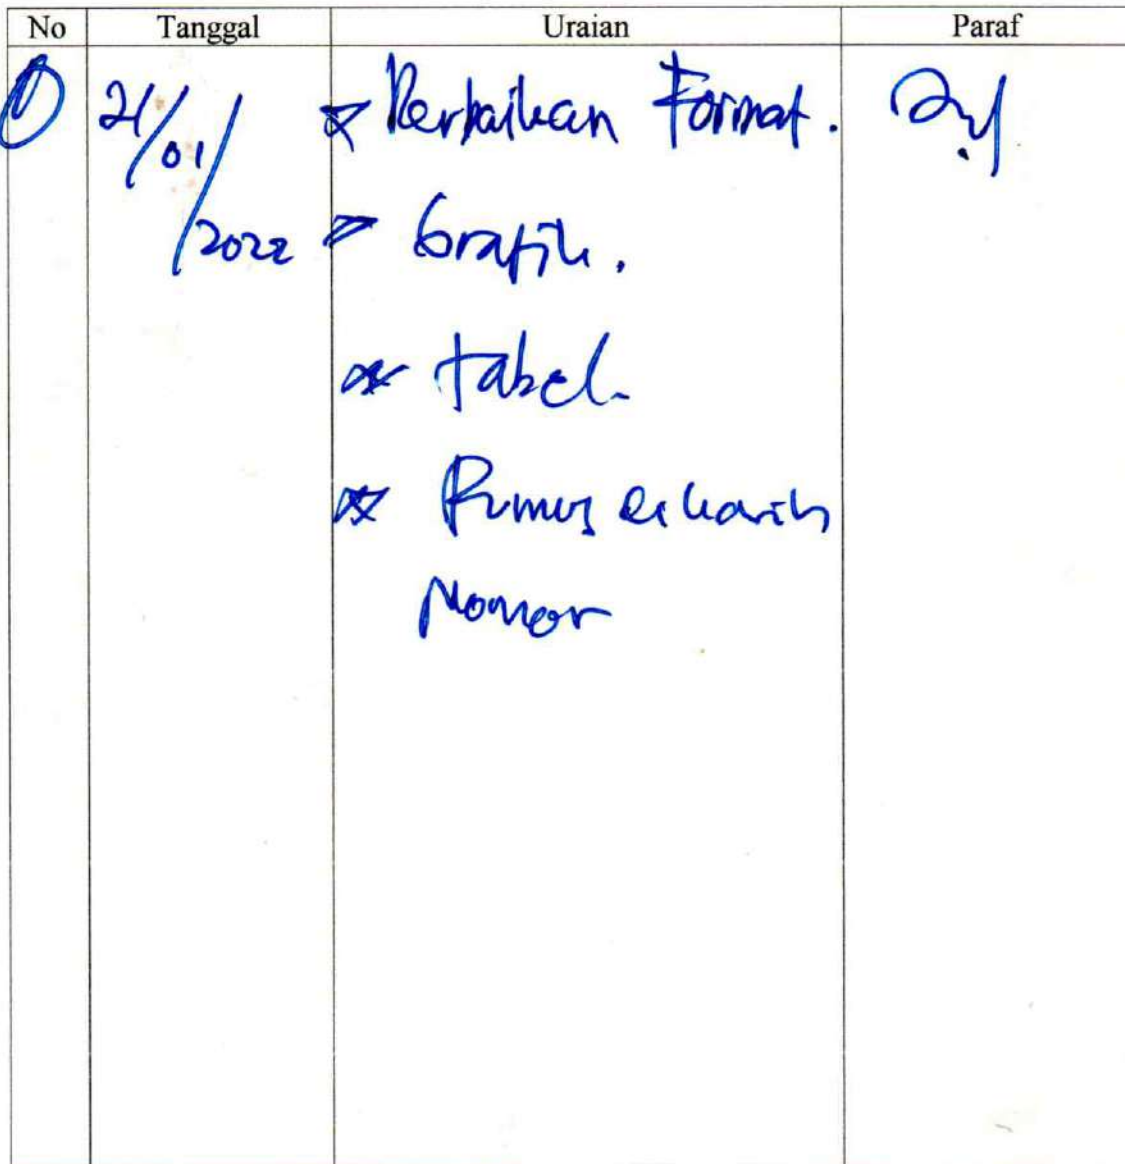 No Tanggal Uraian Paraf
① 21/01/2022 * Perbaikan Format.
* Grafik.
* tabel.
* Rumus di kasih
Nomor